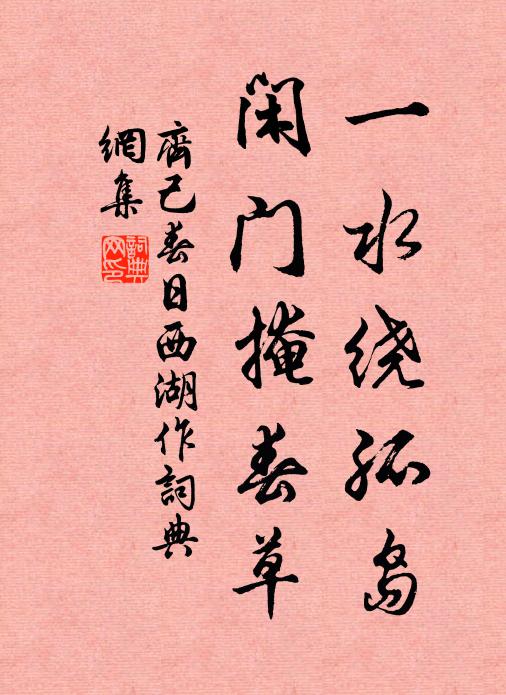 一水绕孤岛
闲门掩春草
齊己春日西湖作詞典
網集
詞典
网印